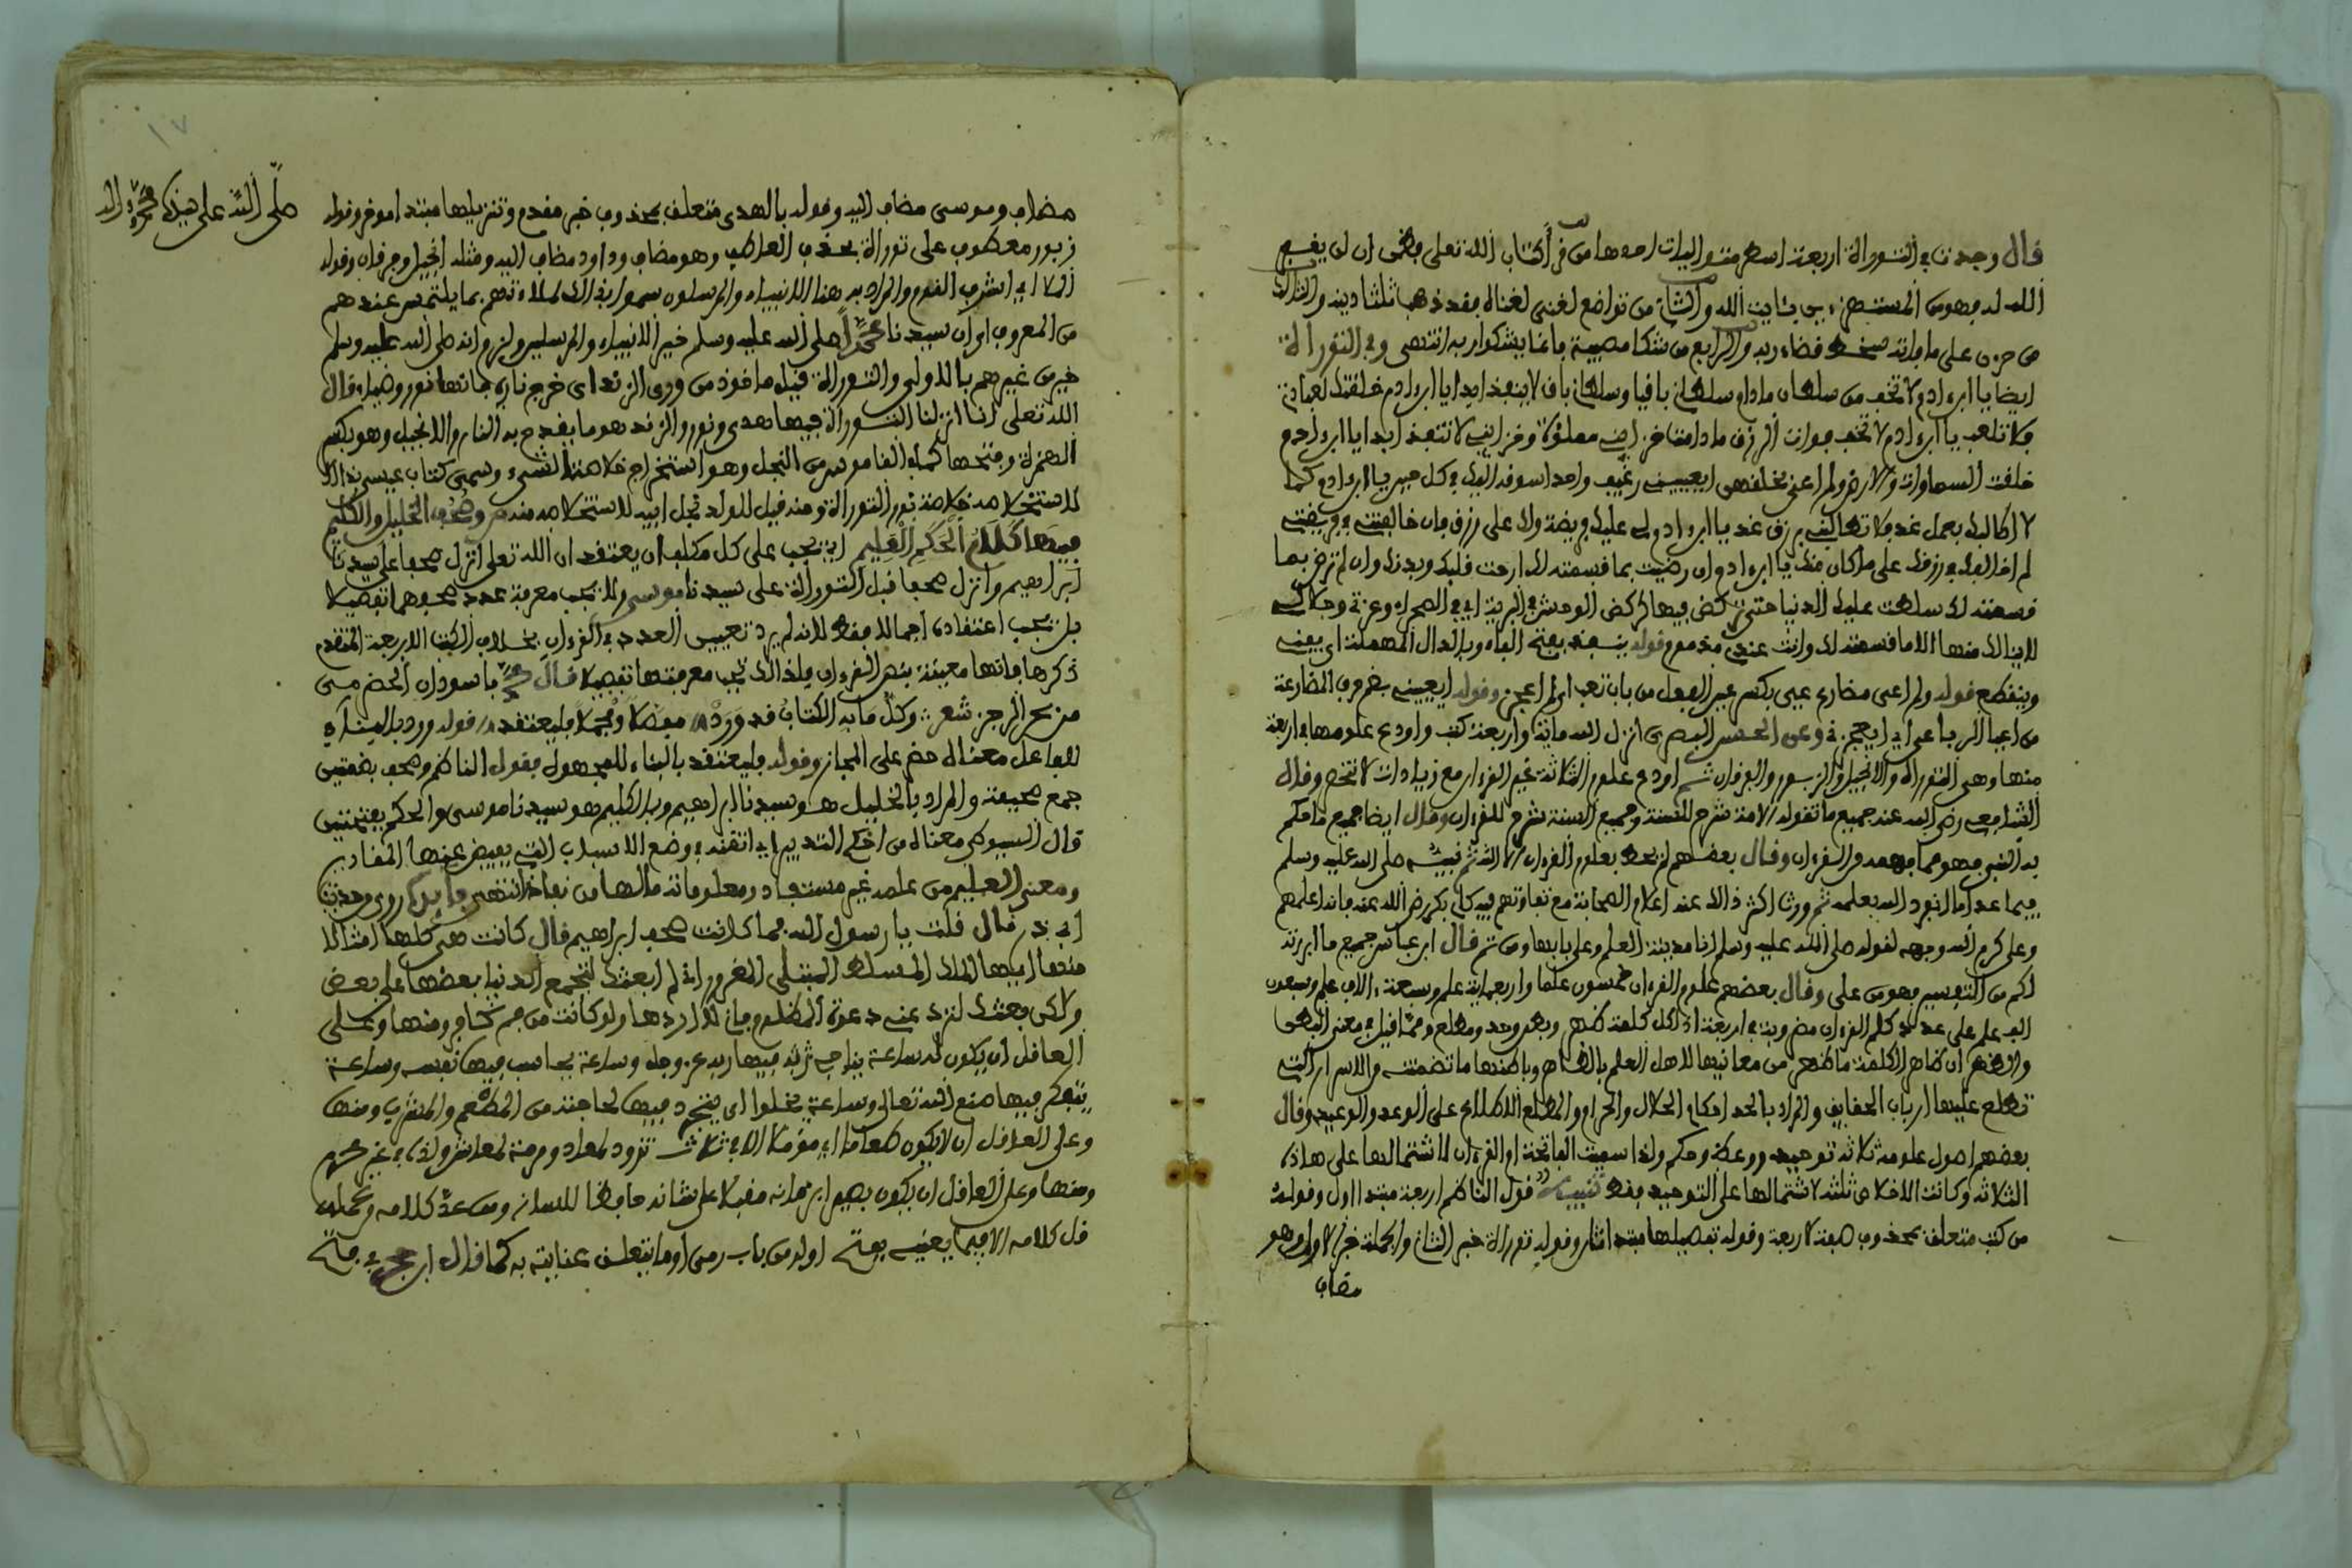 قال وجدت في التوراة اربعة اسطر متواليات احدها من قرأ كتاب الله تعلى فظن ان لن يغفر
الله له فهو من المستهزءين بآيت الله والثاني من تواضع لغني لغناه فقد ذهب ثلثا دينه والثالث
من حزن على ما فاته سخط قضاء ربه والرابع من شكا مصيبة فانما يشكوا ربه انتهى وفي التوراة
ايضا يا ابن ءادم لا تخف من سلطان ما دام سلطاني باقيا وسلطاني باق لا ينفد ابدا يا ابن ءادم خلقتك لعبادتي
فلا تلعب يا ابن ءادم لا تخف فوات الرزق ما دامت خزايني مملوءة وخزايني لا تنفد ابدا يا ابن ءادم
خلقت السماوات والارض ولم اعي بخلقهن ايعييني رغيف واحد اسوقه اليك في كل حين يا ابن ءادم كما
لا اطالبك بعمل غد فلا تطالبني برزق غد يا ابن ءادم لي عليك فريضة ولك علي رزق فان خالفتني في فريضتي
لم اخالفك في رزقك على ما كان منك يا ابن ءادم ان رضيت بما قسمته لك ارحت قلبك وبدنك وان لم ترض بما
قسمته لك سلطت عليك الدنيا حتى تركض فيها كركض الوحش في البرية اي في الصحراء وعزتي وجلالي
لا ينالك منها الا ما قسمته لك وانت عندي مذموم وقوله ينفد بفتح الفاء وبالدال المهملة اي يفنى
وينقطع قوله ولم اعي مضارع عيي بكسر عين الفعل من باب تعب اي لم اعجز وقوله ايعييني بضم حرف المضارعة
من اعيا الرباعي اي ايعجزني وعن الحسن البصري انزل الله ماية واربعة كتب واودع علومها في اربعة
منها وهي التوراة والانجيل والزبور والفرقان ثم اودع علوم الثلاثة غير القرءان مع زيادات لا تحصى وقال
الشافعي رضي الله عنه جميع ما تقوله الامة شرح للسنة وجميع السنة شرح للقرءان وقال ايضا جميع ما حكم
به النبي فهو مما فهمه من القرءان وقال بعضهم لم يحط بعلوم القرءان الا الله ثم نبيه صلى الله عليه وسلم
فيما عدا ما انفرد الله بعلمه ثم ورث اكثر ذالك عنه اعلام الصحابة مع تفاوتهم فيه كابي بكر رضي الله عنه فانه اعلمهم
وعلي كرم الله وجهه لقوله صلى الله عليه وسلم انا مدينة العلم وعلي بابها ومن ثم قال ابن عباس جميع ما ابرزته
لكم من التفسير فهو من علي وقال بعضهم علوم القرءان خمسون علما واربعماية علم وسبعة ءالاف علم وسبعون
الف علم على عدد كلم القرءان مضروبة في اربعة اذ لكل كلمة ظهر وبطن وحد ومطلع ومما قيل في معنى البطن
والظهر ان ظاهر الكلمة ما ظهر من معانيها لاهل العلم بالظاهر وباطنها ما تضمنت من الاسرار التي
تطلع عليها ارباب الحقايق والمراد بالحد احكام الحلال والحرام والمطلع الاطلاع على الوعد والوعيد وقال
بعضهم اصول علومه ثلاثة توحيد ووعظ وحكم ولذا سميت الفاتحة ام القرءان لاشتمالها على هاذه
الثلاثة وكانت الاخلاص ثلثه لاشتمالها على التوحيد فقط تنبيه قول الناظم اربعة مبتدا اول وقوله
من كتب متعلق بمحذوف صفة لاربعة وقوله تفصيلها مبتدا ثان وقوله توراة خبر الثاني والجملة خبر الاول وهو
مضاف
مضاف وموسى مضاف اليه وقوله بالهدى متعلق بمحذوف خبر مقدم وتنزيلها مبتدا مؤخر وقوله
صلى الله على سيدنا محمد وءاله
زبور معطوف على توراة بحذف العاطف وهو مضاف وداود مضاف اليه ومثله انجيل وفرقان وقوله
الملا اي اشرف القوم والمراد به هنا الانبياء والمرسلون سموا بذالك لملاءتهم بما يلتمس عندهم
من المعروف اي ان سيدنا محمدا صلى الله عليه وسلم خير الانبياء والمرسلين ولزم انه صلى الله عليه وسلم
خير من غيرهم بالاولى والتوراة قيل ماخوذ من ورى الزند اي خرج ناره لانها نور وضياء قال
الله تعلى انا انزلنا التوراة فيها هدى ونور والزند هو ما يقدح به النار والانجيل وهو بكسر
الهمزة وفتحها كما في القاموس من النجل وهو استخراج خلاصة الشيء وسمي كتاب عيسى بذالك
لاستخلاصه خلاصة نور التوراة ومنه قيل للولد نجل ابيه لاستخلاصه منه وصحف الخليل والكليم
فيها كلام الحكم العليم اي يجب على كل مكلف ان يعتقد ان الله تعلى انزل صحفا على سيدنا
ابراهيم وانزل صحفا قبل التوراة على سيدنا موسى ولا يجب معرفة عدد صحفهما تفصيلا
بل يجب اعتقاده اجمالا فقط لانه لم يرد تعيين العدد في القرءان بخلاف الكتب الاربعة المتقدم
ذكرها فانها معينة بنص القرءان فلذالك تجب معرفتها تفصيلا قال محمد باسودان الحضرمي
من بحر الرجز شعر وكل ما به الكتاب قد ورد مفصلا ومجملا فليعتقد قوله ورد بالبناء
للفاعل معناه حضر على المجاز وقوله فليعتقد بالبناء للمجهول فقول الناظم وصحف بضمتين
جمع صحيفة والمراد بالخليل هو سيدنا ابراهيم وبالكليم هو سيدنا موسى والحكم بفتحتين
قال السيوطي معناه من احكم التدبير اي اتقنه في وضع الاسباب التي يفيض عنها المقادير
ومعنى العليم من علمه غير مستفاد ومعلوماته ما لها من نفاد انتهى فايدة روي وحديث
ابي ذر قال قلت يا رسول الله فما كانت صحف ابراهيم قال كانت هي كلها امثالا
منها ايها الملك المسلط المبتلى المغرور اني لم ابعثك لتجمع الدنيا بعضها على بعض
ولاكن بعثتك لترد عني دعوة المظلوم فاني لا اردها ولو كانت من فم كافر ومنها وعلى
العاقل ان يكون له ساعة يناجي فيها ربه عز وجل وساعة يحاسب فيها نفسه وساعة
يتفكر فيها صنع الله تعالى وساعة يخلوا اي ينفرد فيها لحاجته من المطعم والمشرب ومنها
وعلى العاقل ان لا يكون طامعا اي مؤملا الا في ثلاث تزود لمعاد ومرمة لمعاش ولذة في غير محرم
ومنها وعلى العاقل ان يكون بصيرا بزمانه مقبلا على شانه حافظا للسانه ومن عد كلامه من عمله
قل كلامه الا فيما يعنيه بفتح اوله من باب رمى اي ما يتعلق عنايته به كما قال ابن حجر في فتح